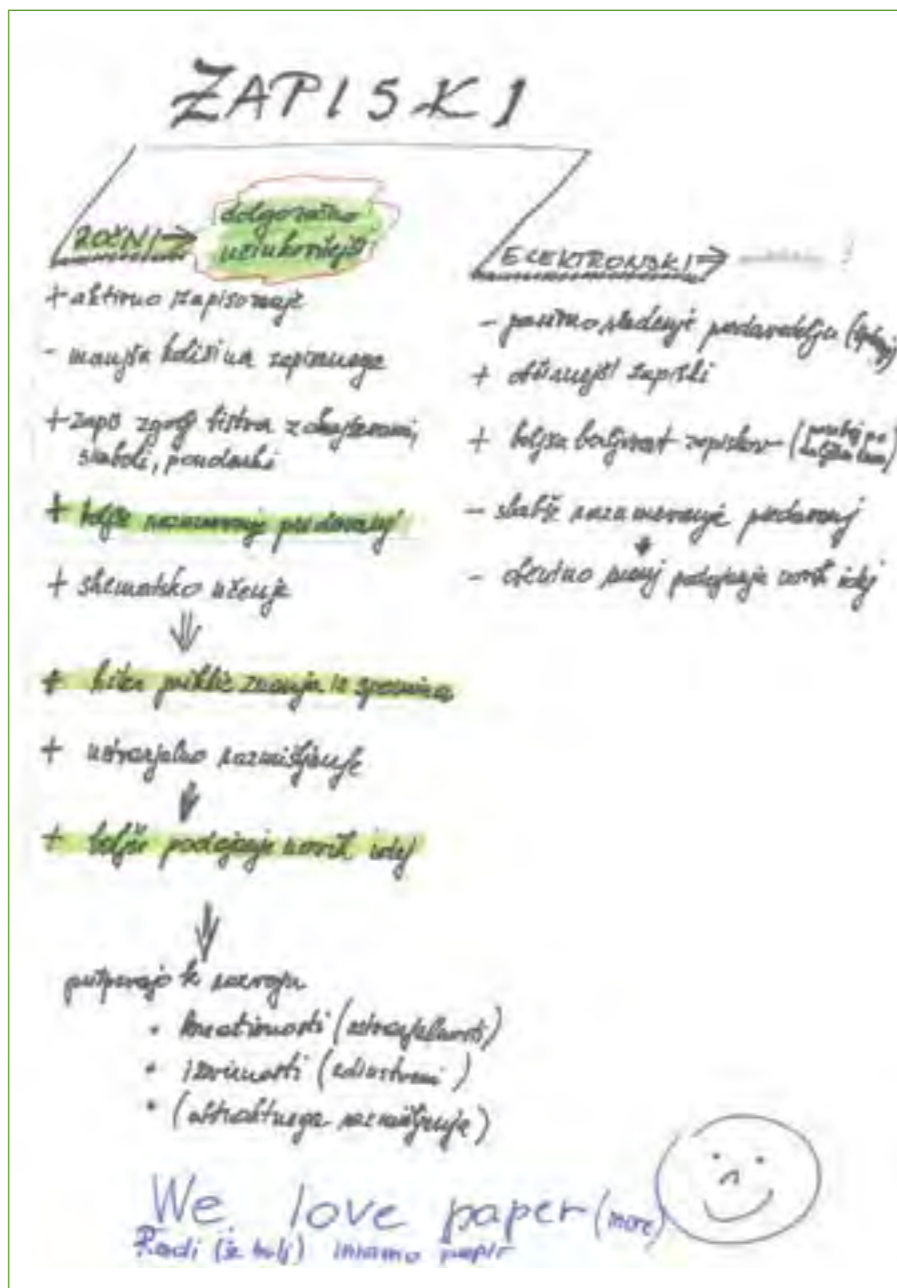 ZAPISKI
ROČNI → dolgoročno
učinkovitejši
+ aktivno zapisovanje
- manjša količina zapisanega
+ zapis zgolj bistva z okrajšavami,
simboli, poudarki
+ boljše razumevanje predavanj
+ shematsko učenje
+ hiter priklic znanja iz spomina
+ ustvarjalno razmišljanje
+ boljše podajanje novih idej
pripevajo k razvoju
• kreativnosti (ustvarjalnosti)
• izvirnosti (edinstveni)
• (abstraktnega razmišljanja)
ELEKTRONSKI →
- pasivno sledenje predavatelju
+ obširnejši zapiski
+ boljša berljivost zapiskov
- slabše razumevanje predavanj
- občutno manj podajanja novih idej
We love paper (more)
Radi (še bolj) imamo papir